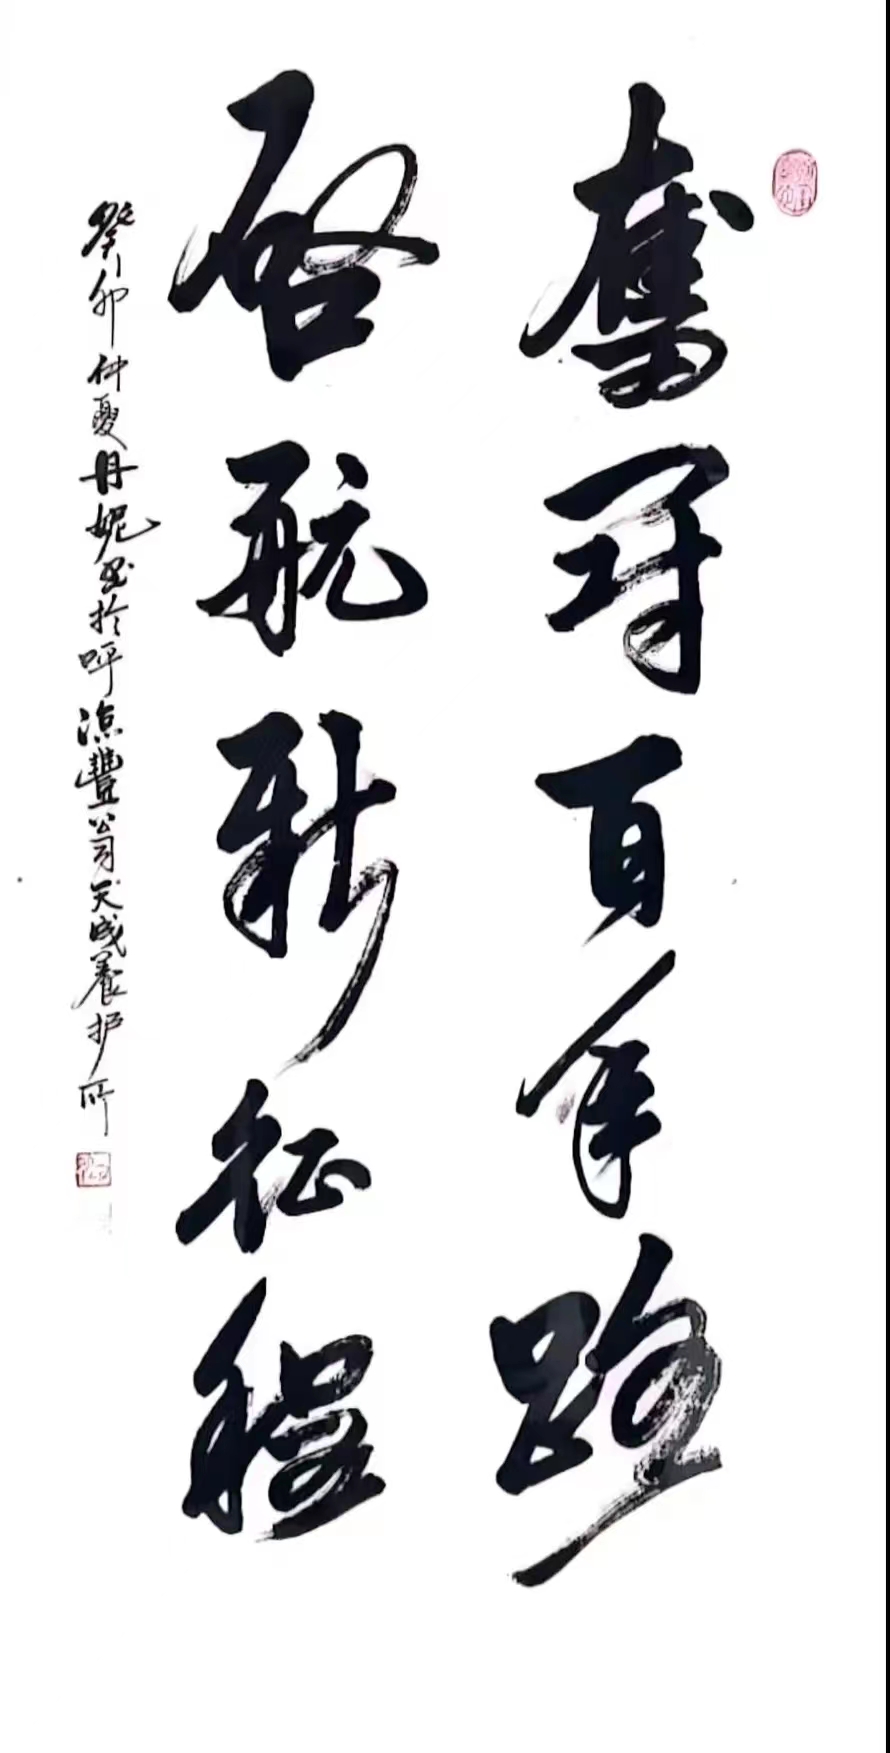 奮鬥百年路
啟航新征程
癸卯仲夏丹妮书於呼凉豐公司天成養护所